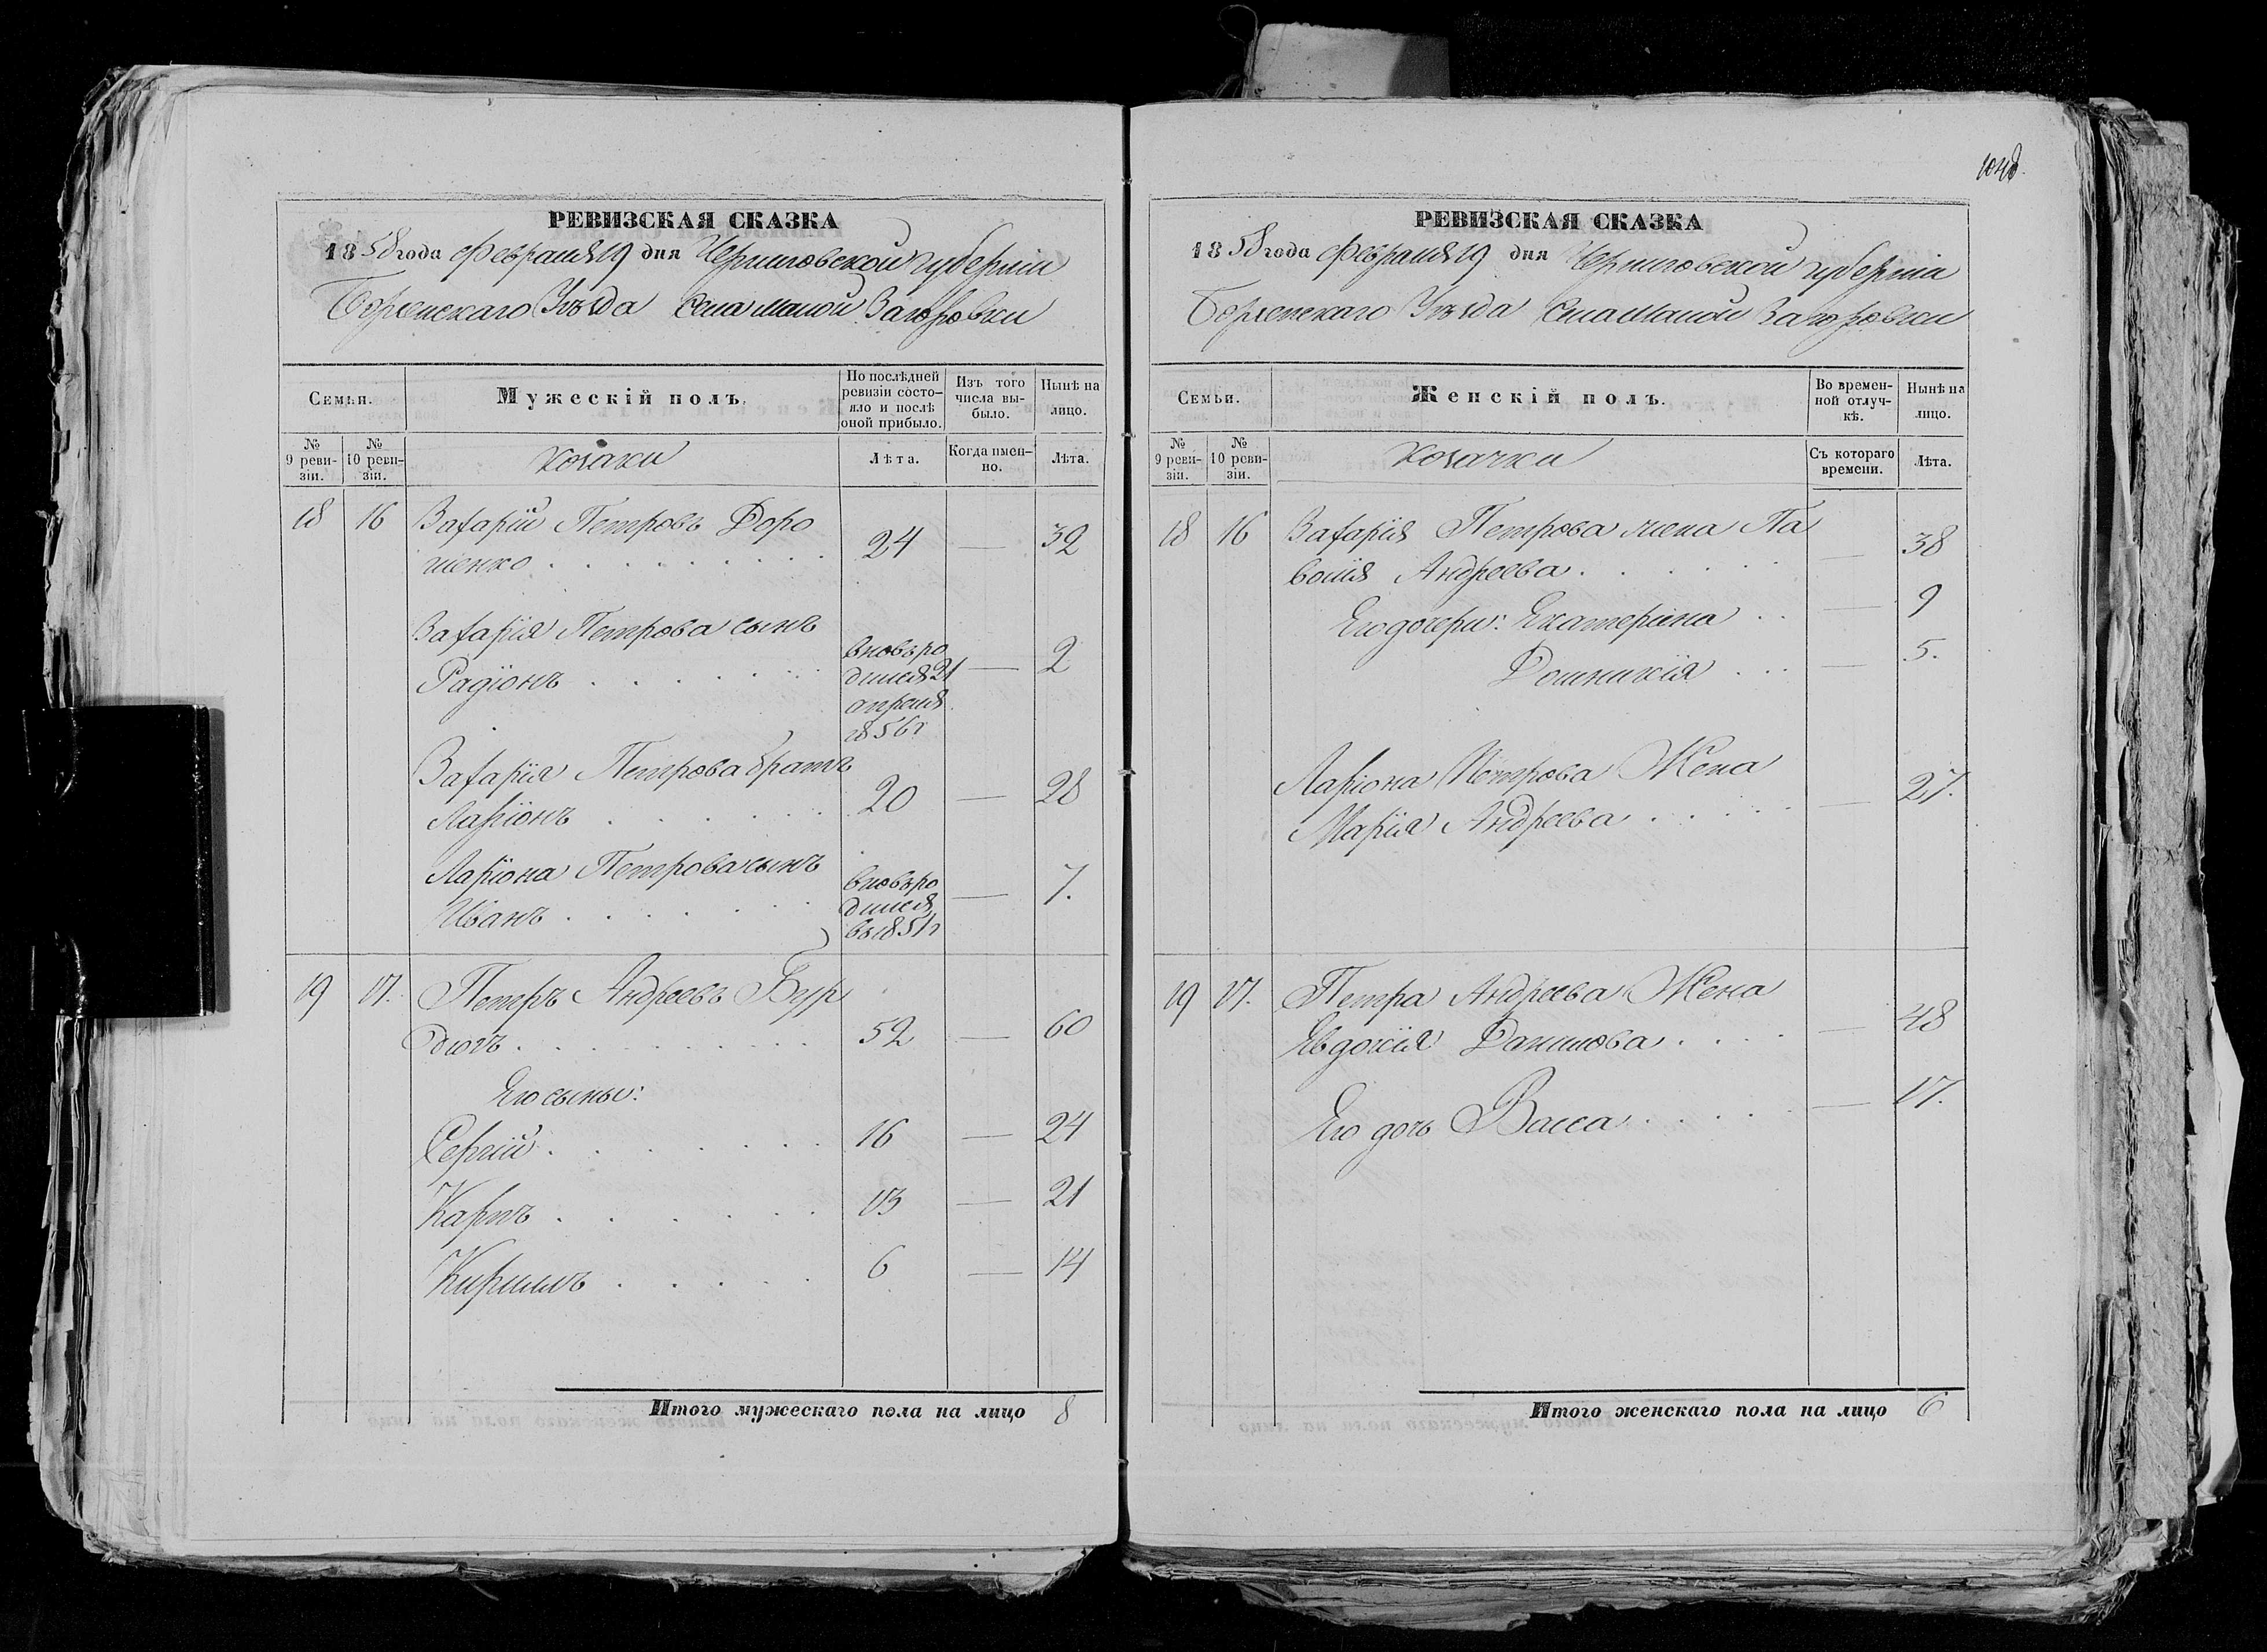 1048.
РЕВИЗСКАЯ СКАЗКА
1858 года Февраля 19 дня Черниговской губерніи
Борзенскаго Уѣзда села малой Загоровки
Семьи.
Мужескій полъ.
По послѣдней ревизіи состояло и послѣ оной прибыло.
Изъ того числа выбыло.
Нынѣ на лицо.
№ 9 ревизіи.
№ 10 ревизіи.
козаки
Лѣта.
Когда именно.
Лѣта.
18 16 Захарій Петровъ Доро
шенко . . . . . . . . 24 — 32
Захарія Петрова сынъ
Радіонъ . . . . . . вновь ро
дился 21 — 2
апреля
1856 г
Захарія Петрова братъ
Ларіонъ . . . . . . 20 — 28
Ларіона Петрова сынъ
Иванъ . . . . . . вновь ро
дился — 7.
въ 1851 г
19 17. Петръ Андреевъ Бур
дюгъ . . . . . . . . 52 — 60
Его сыны:
Сергій . . . . . . 16 — 24
Карпъ . . . . . . 13 — 21
Кириллъ . . . . . 6 — 14
Итого мужескаго пола на лицо 8
РЕВИЗСКАЯ СКАЗКА
1858 года Февраля 19 дня Черниговской губерніи
Борзенскаго Уѣзда села Малой Загоровки
Семьи.
Женскій полъ.
Во временной отлучкѣ.
Нынѣ на лицо.
№ 9 ревизіи.
№ 10 ревизіи.
козачки
Съ котораго времени.
Лѣта.
18 16 Захарія Петрова жена Па
волія Андреева . . . . . — 38
Его дочери: Екатерина . . — 9
Домникія . . . — 5.
Ларіона Петрова Жена
Марія Андреева . . . . — 27.
19 17. Петра Андреева Жена
Евдокія Данилова . . . . — 48
Его дочь Васса . . . . — 17.
Итого женскаго пола на лицо 6